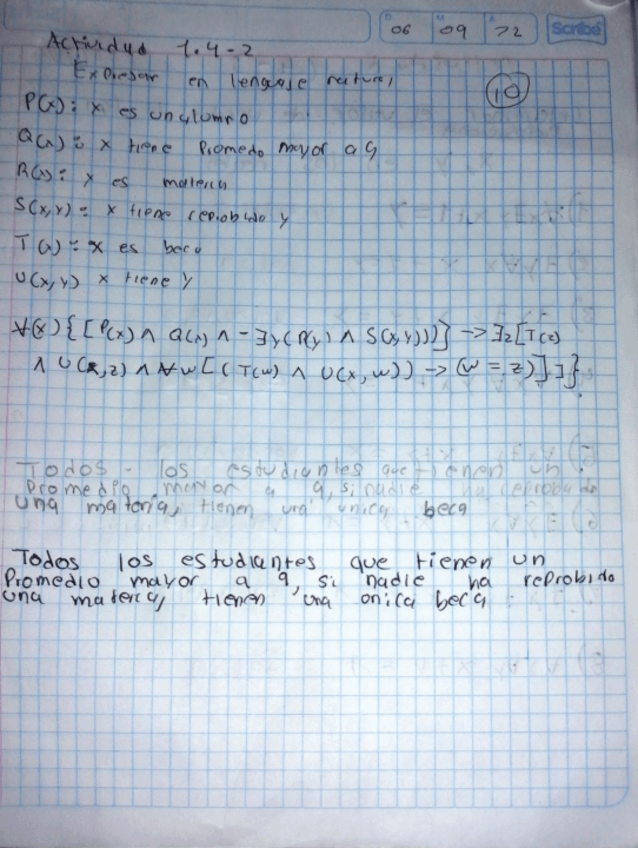 D M A
06 09 22 Scribe
Actividad 1.4-2
Expresar en lenguaje natural
10
P(x): x es un alumno
Q(x): x tiene Promedo mayor a 9
R(x): x es materia
S(x,y): x tiene reprobado y
T(x): x es beca
U(x,y) x tiene y
∀(x){[P(x) ∧ Q(x) ∧ -∃y(R(y) ∧ S(x,y))]} -> ∃z[T(z)
∧ U(x,z) ∧ ∀w[(T(w) ∧ U(x,w)) -> (w = z)]]}
Todos - los estudiantes que tienen un
Promedio mayor a 9, si nadie ha reprobado
una materia, tienen una unica beca
Todos los estudiantes que tienen un
Promedio mayor a 9, si nadie ha reprobido
una materia, tienen una onica beca